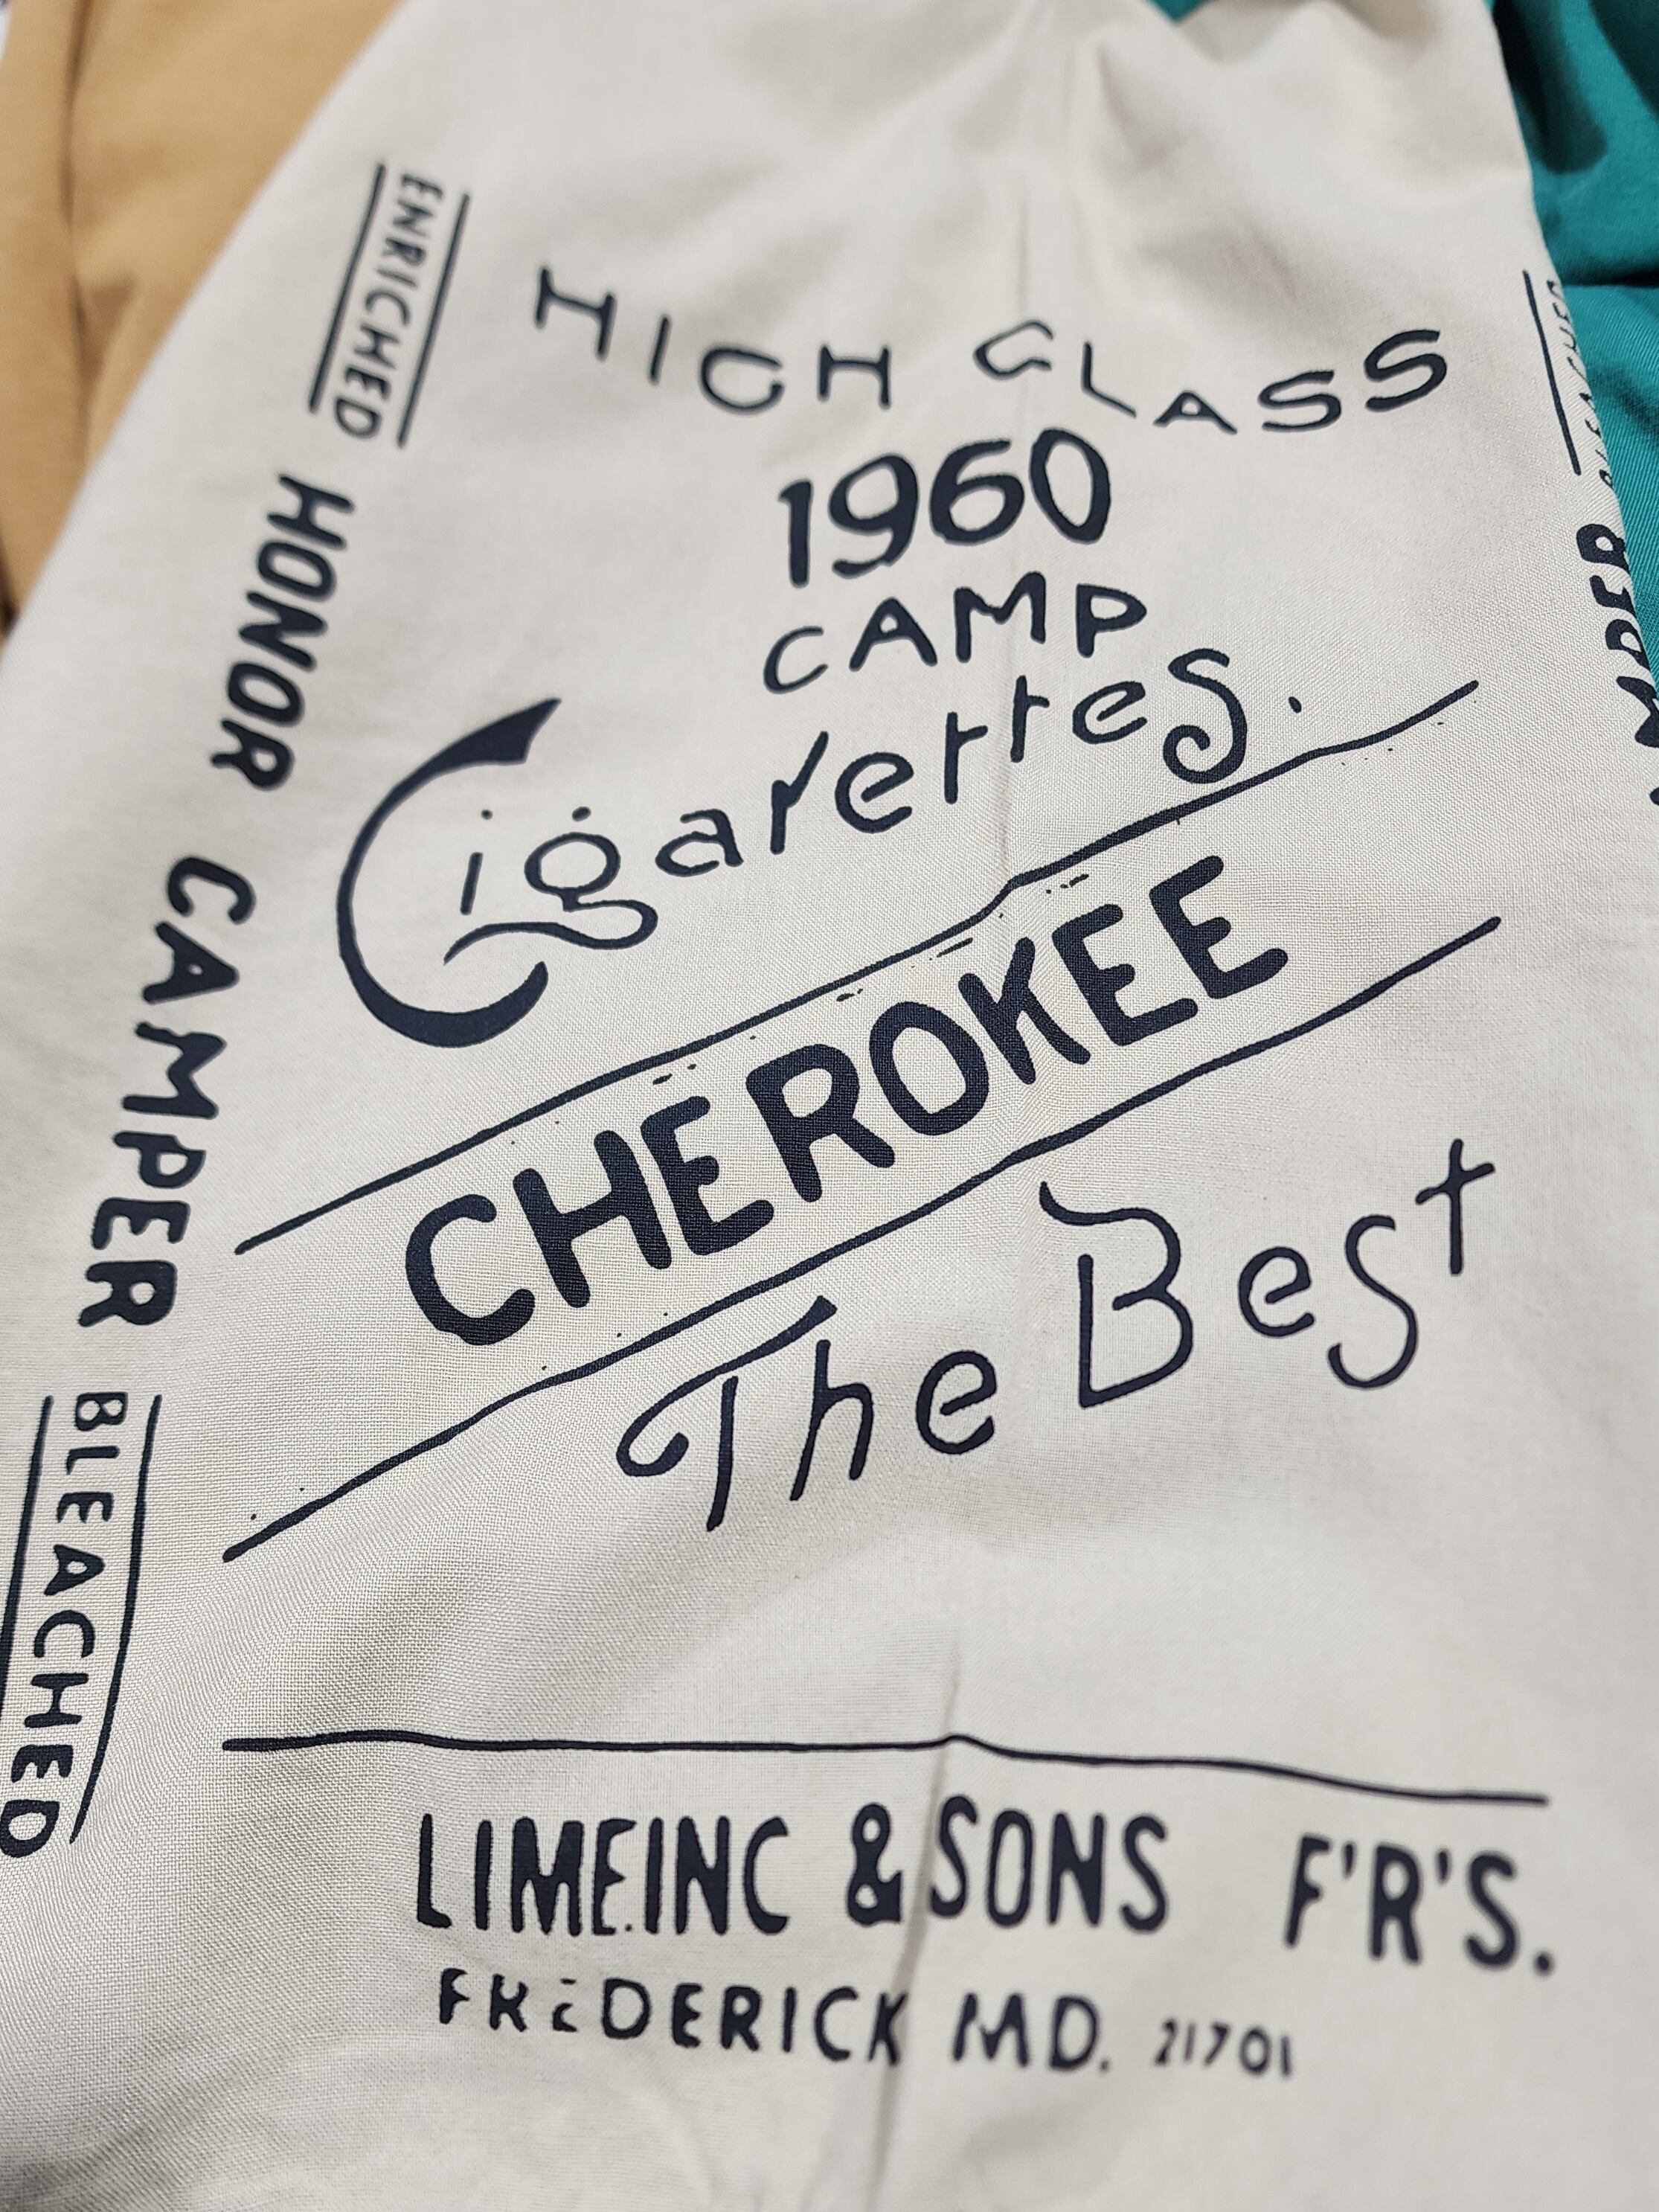 ENRICHED
HONOR CAMPER
BLEACHED
HIGH CLASS
1960
CAMP
Cigarettes.
CHEROKEE
The Best
LIME.INC & SONS F'R'S.
FREDERICK MD. 21701
BLEACHED